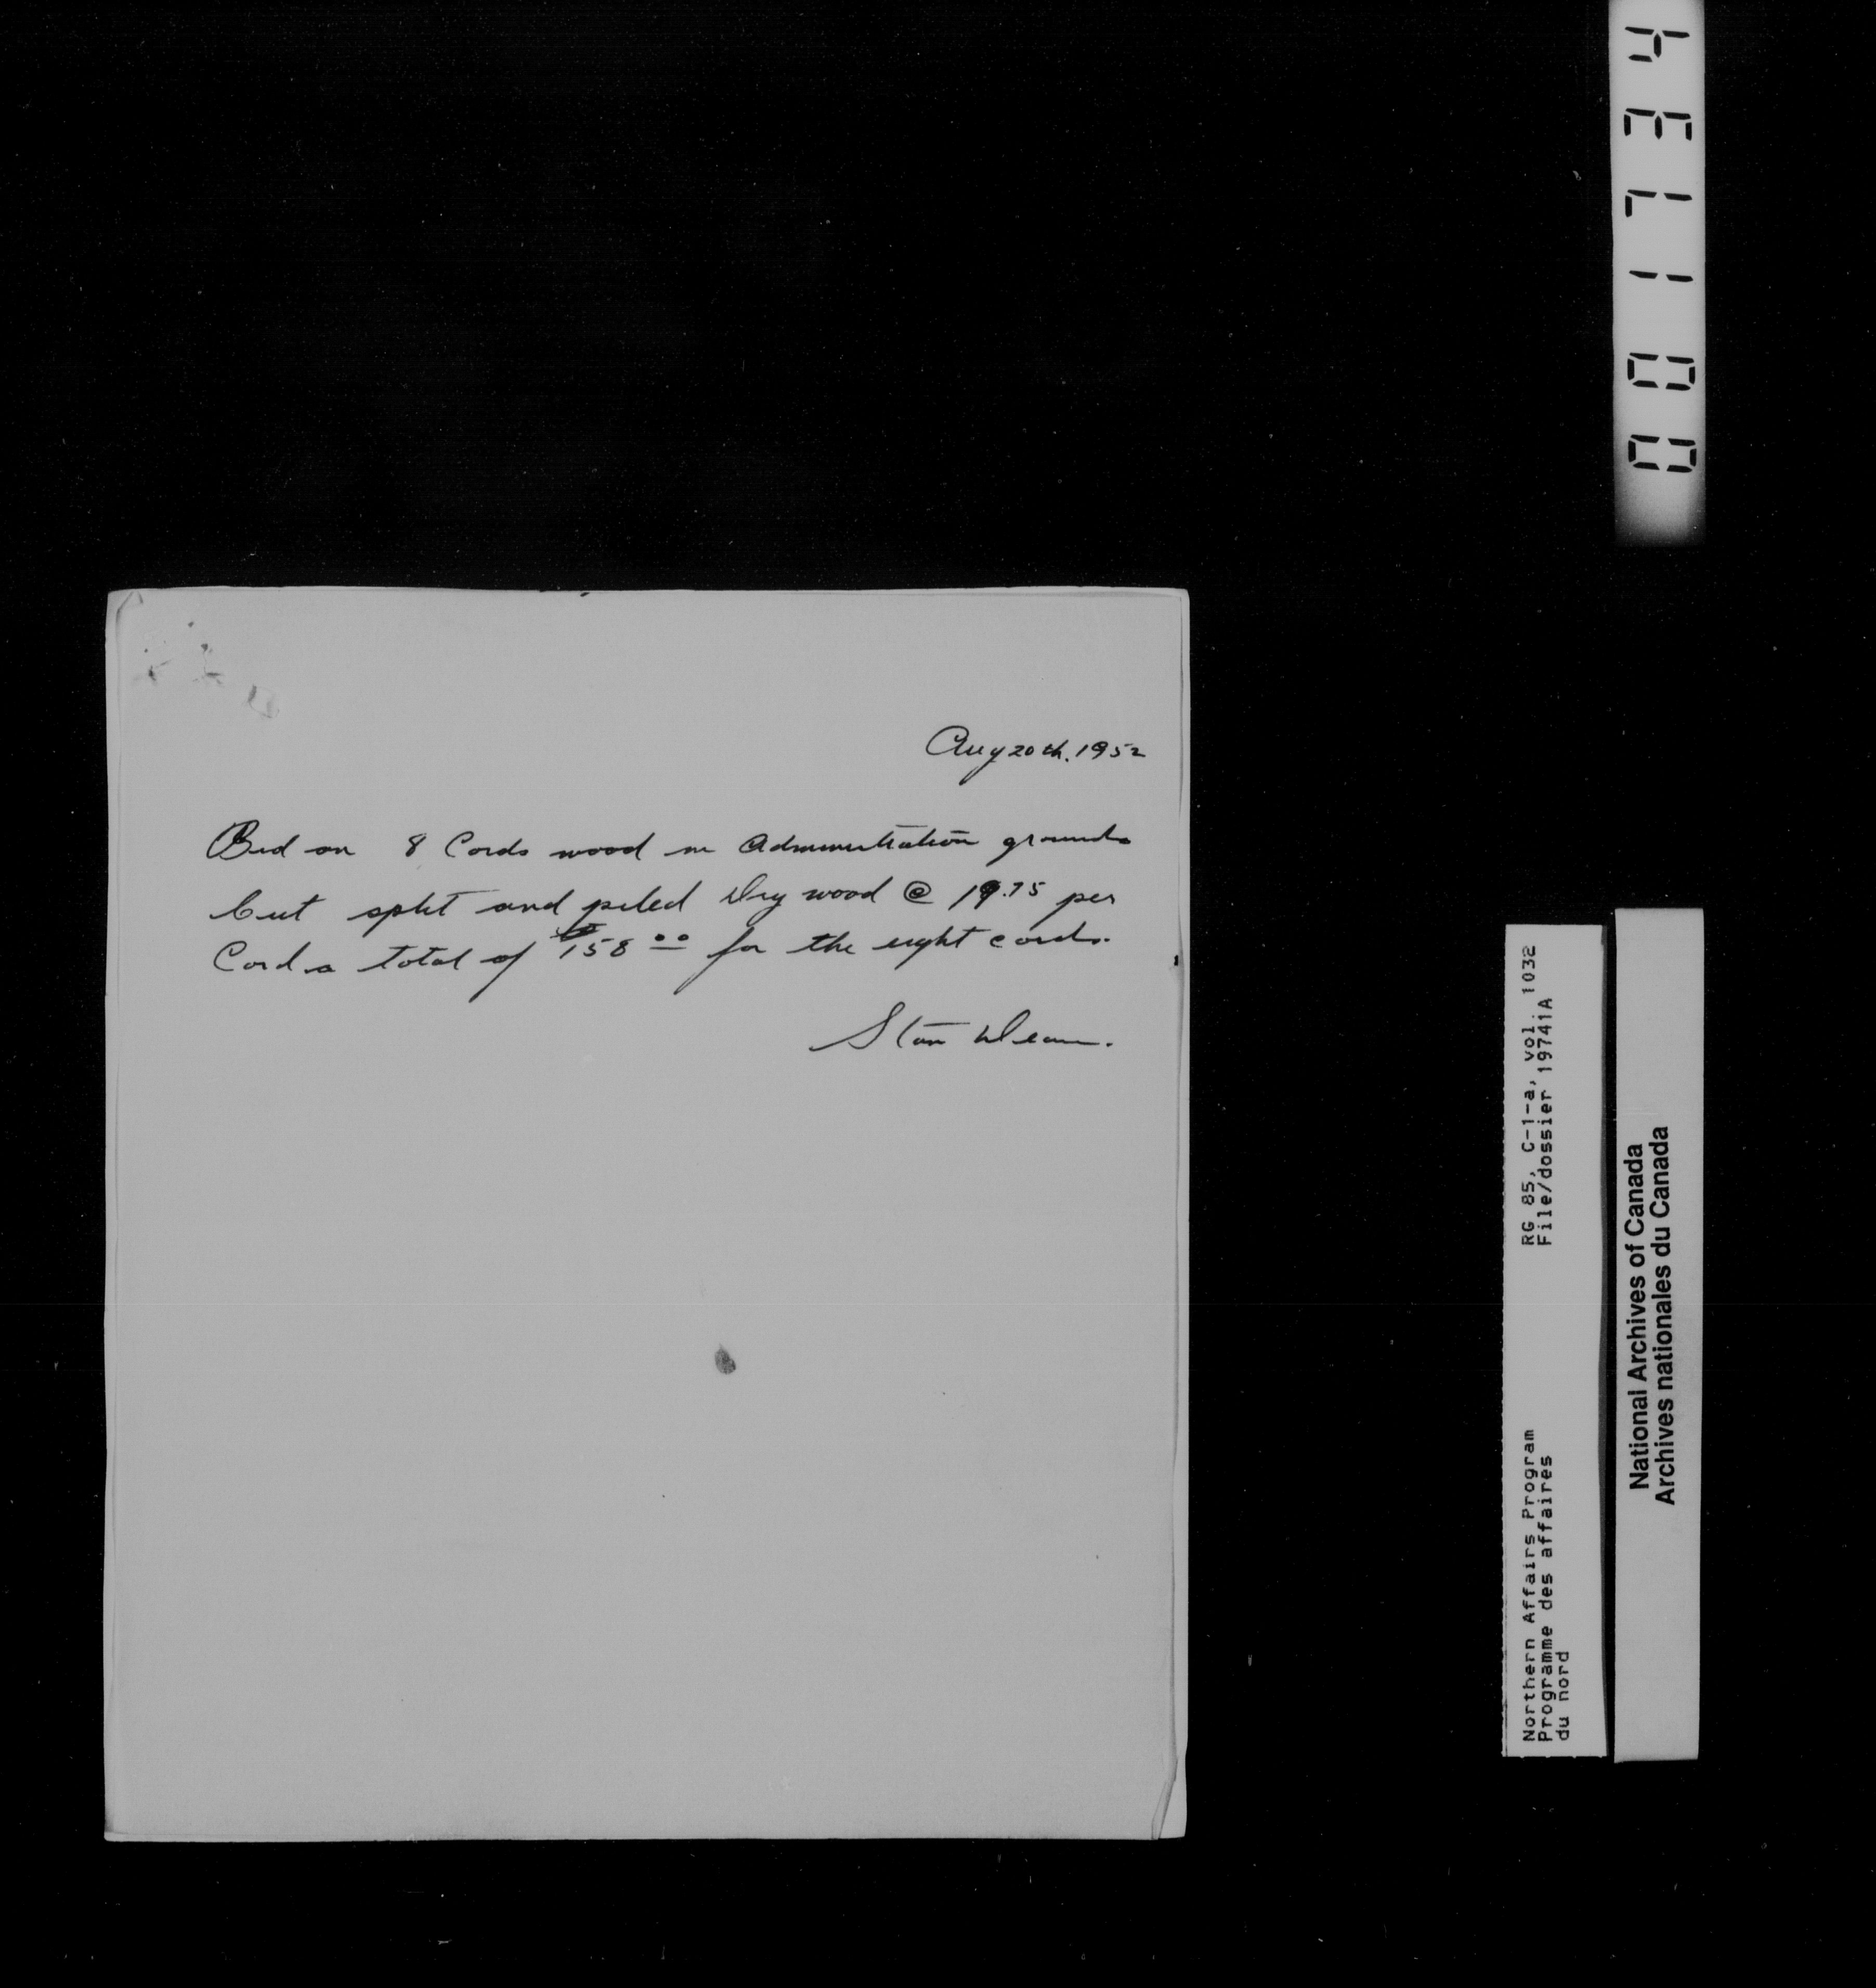 Aug 20th. 1952
Bid on 8 Cords wood in Administration grounds
Cut split and piled Dry wood @ 19.75 per
Cord a total of $158 00 for the eight cords.
Stan Dean.
RG 85, C-1-a, vol. 1032
File/dossier 19741A
Northern Affairs Program
Programme des affaires
du nord
National Archives of Canada
Archives nationales du Canada